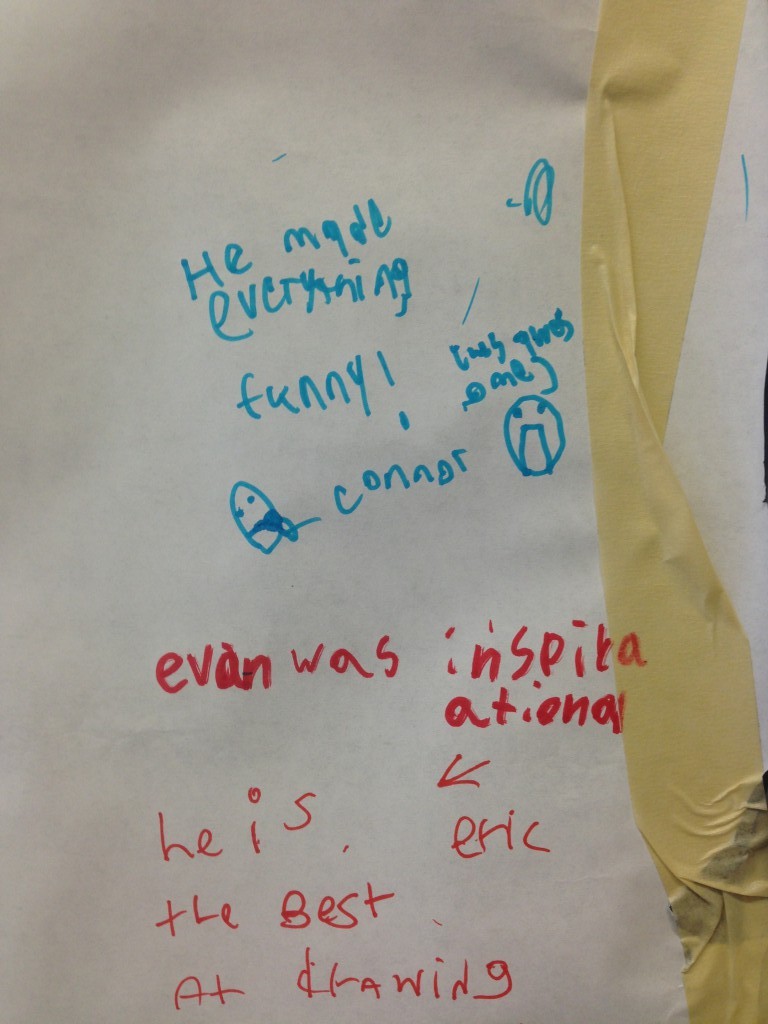 He made
everything
funny!
(was awes
ome)
connor
evan was inspira
ational
he is
eric
the Best
At drawing